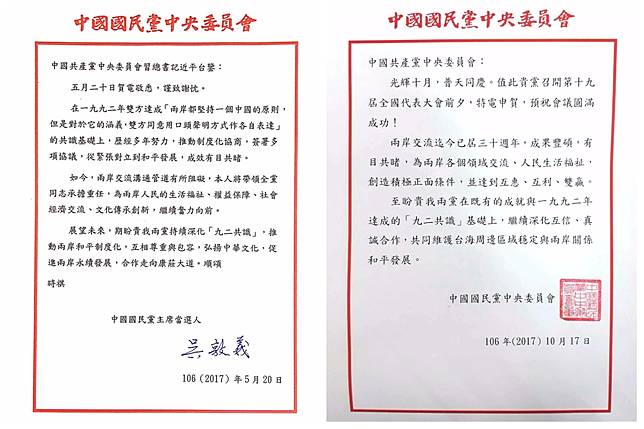 中國國民黨中央委員會
中國共產黨中央委員會習總書記近平台鑒：
五月二十日賀電敬悉，謹致謝忱。
在一九九二年雙方達成「兩岸都堅持一個中國的原則，
但是對於它的涵義，雙方同意用口頭聲明方式作各自表達」
的共識基礎上，歷經多年努力，推動制度化協商，簽署多
項協議，從緊張對立到和平發展，成效有目共睹。
如今，兩岸交流溝通管道有所阻礙，本人將帶領全黨
同志承擔重任，為兩岸人民的生活福祉、權益保障、社會
經濟交流、文化傳承創新，繼續奮力向前。
展望未來，期盼貴我兩黨持續深化「九二共識」，推
動兩岸和平制度化，互相尊重與包容，弘揚中華文化，促
進兩岸永續發展，合作走向康莊大道。順頌
時祺
中國國民黨主席當選人
吳敦義
106（2017）年5月20日
中國國民黨中央委員會
中國共產黨中央委員會：
光輝十月，普天同慶。值此貴黨召開第十九
屆全國代表大會前夕，特電申賀，預祝會議圓滿
成功！
兩岸交流迄今已屆三十週年，成果豐碩，有
目共睹，為兩岸各個領域交流、人民生活福祉，
創造積極正面條件，並達到互惠、互利、雙贏。
至盼貴我兩黨在既有的成就與一九九二年
達成的「九二共識」基礎上，繼續深化互信、真
誠合作，共同維護台海周邊區域穩定與兩岸關係
和平發展。
中國國民黨中央委員會
106年(2017)10月17日